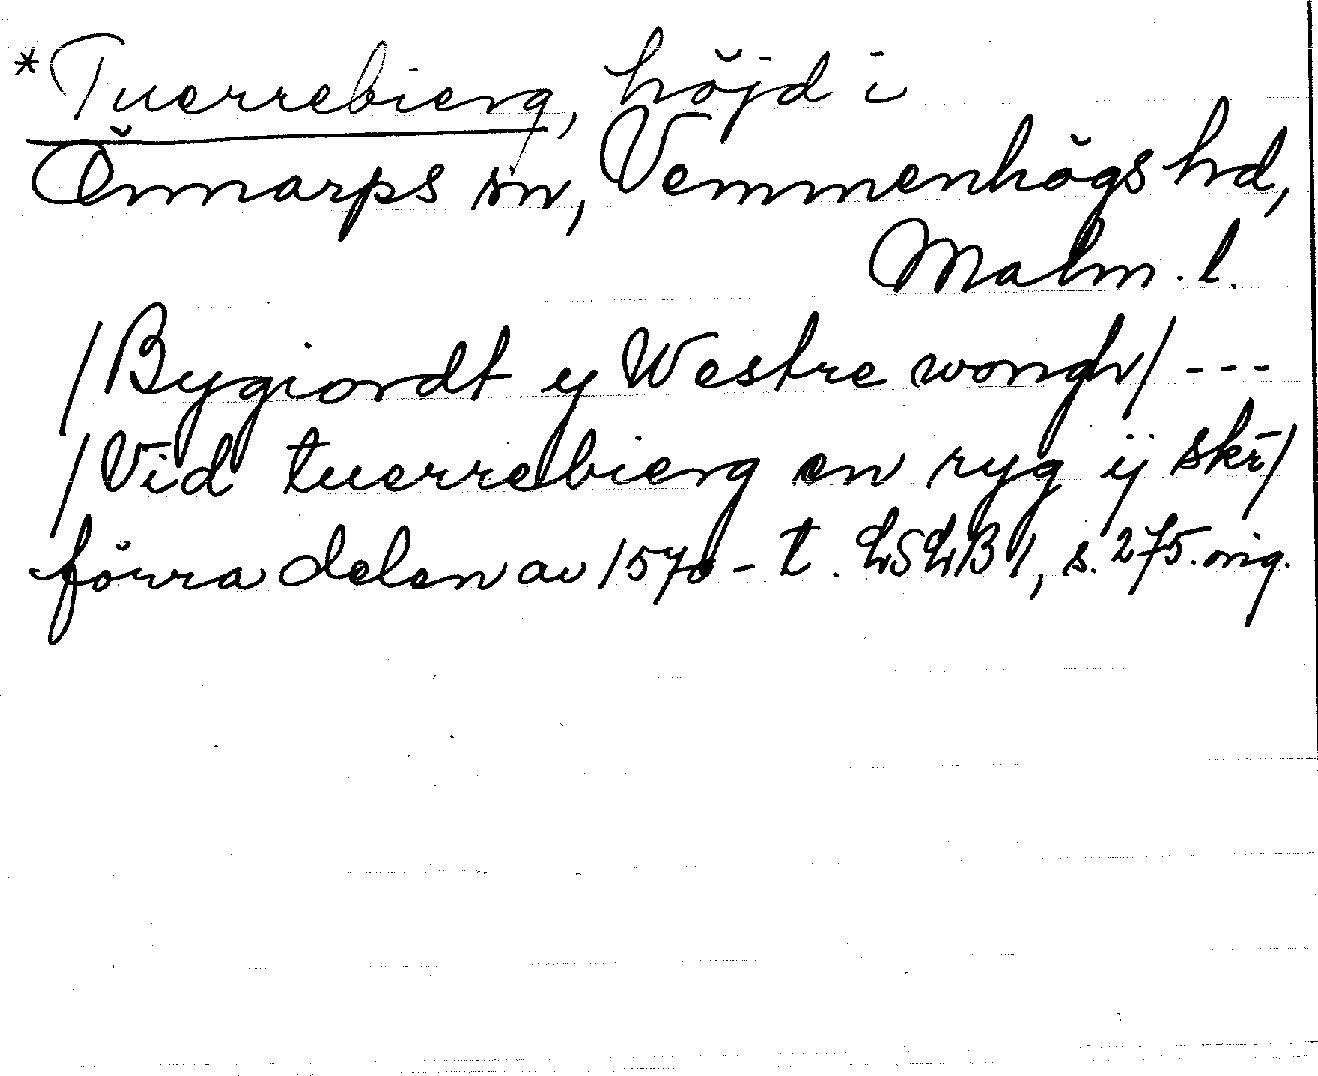 *Tuerrebierg, höjd i
Önnarps sn, Vemmenhögs hd,
Malm. l.
/Bygiordt y Westre wongh/ ---
/Vid tuerrebierg en ryg ij skr̄/
förra delen av 1570-t. LSLB 1, s. 275. orig.